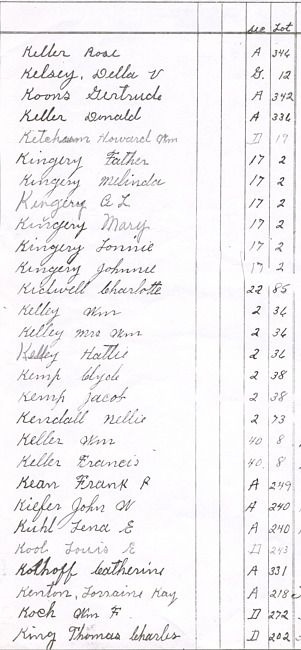 Sec Lot
Keller Rose A 344
Kelsey, Della V G 12
Koons Gertrude A 342
Keller Donald A 334
Ketchum Howard Wm D 19
Kingery Father 17 2
Kingery Melinda 17 2
Kingery A L 17 2
Kingery Mary 17 2
Kingery Lonnie 17 2
Kingery Johnnie 17 2
Kidwell Charlotte 22 85
Kelley Wm 2 36
Kelley Mrs Wm 2 36
Kelley Hattie 2 36
Kemp Clyde 2 38
Kemp Jacob 2 38
Kendall Nellie 2 73
Keller Wm 40 8
Keller Francis 40 8
Kean Frank P A 249
Kiefer John W A 240
Kuhl Lena E A 240
Kool Louis E D 243
Kolhoff Catherine A 331
Kenton, Lorraine Kay A 218
Koch Wm F. D 272
King Thomas Charles D 202